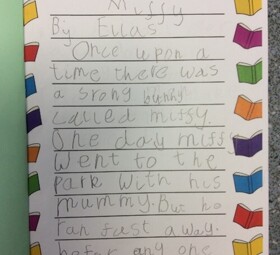 Miffy
By Ellas
Once upon a
time there was
a srong bunny
called miffy.
One day miffy
went to the
park with his
mummy. But he
ran fast away.
before any one